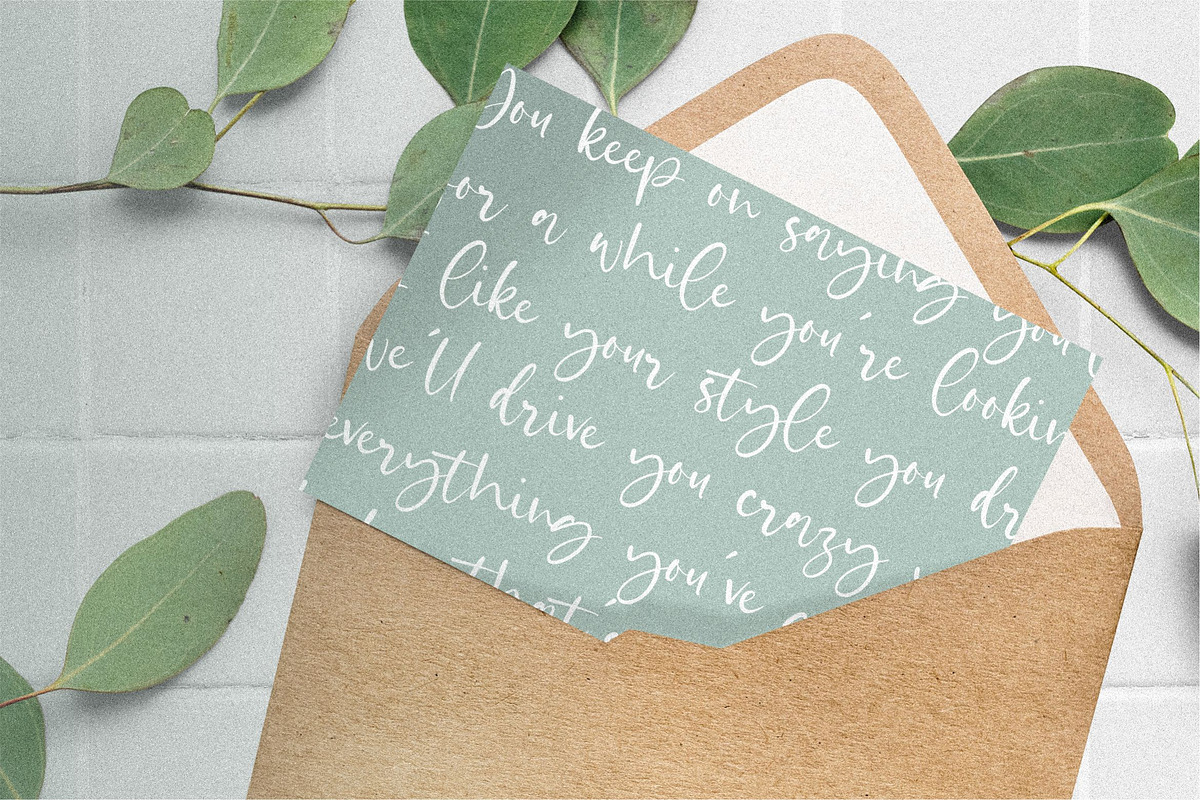 You keep on saying you
or a while you're lookin
like your style you dr
we'll drive you crazy
everything you've
that